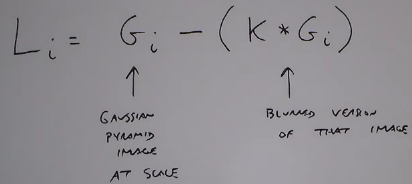 L_i = G_i - ( K * G_i )
GAUSSIAN
PYRAMID
IMAGE
AT SCALE
BLURRED VERSION
OF THAT IMAGE